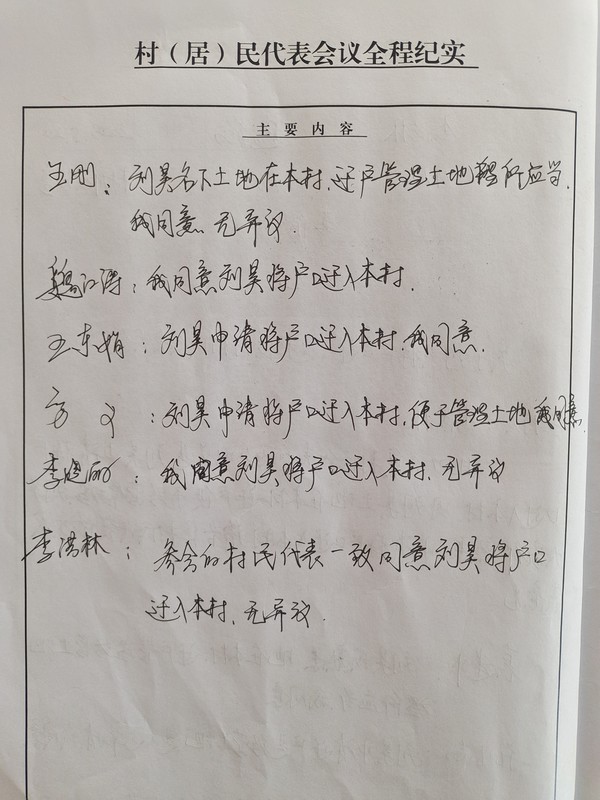 村（居）民代表会议全程纪实
主要内容
王刚：刘昊名下土地在本村，迁户管理土地理所应当，
我同意，无异议．
魏江涛：我同意刘昊将户口迁入本村．
王东娟：刘昊申请将户口迁入本村，我同意．
方义：刘昊申请将户口迁入本村，便于管理土地我同意．
李　丽：我同意刘昊将户口迁入本村，无异议
李洪林：参会的村民代表一致同意刘昊将户口
迁入本村，无异议．